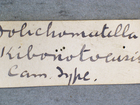 Dolichomutilla
Kibonotensis
Cam. Type.